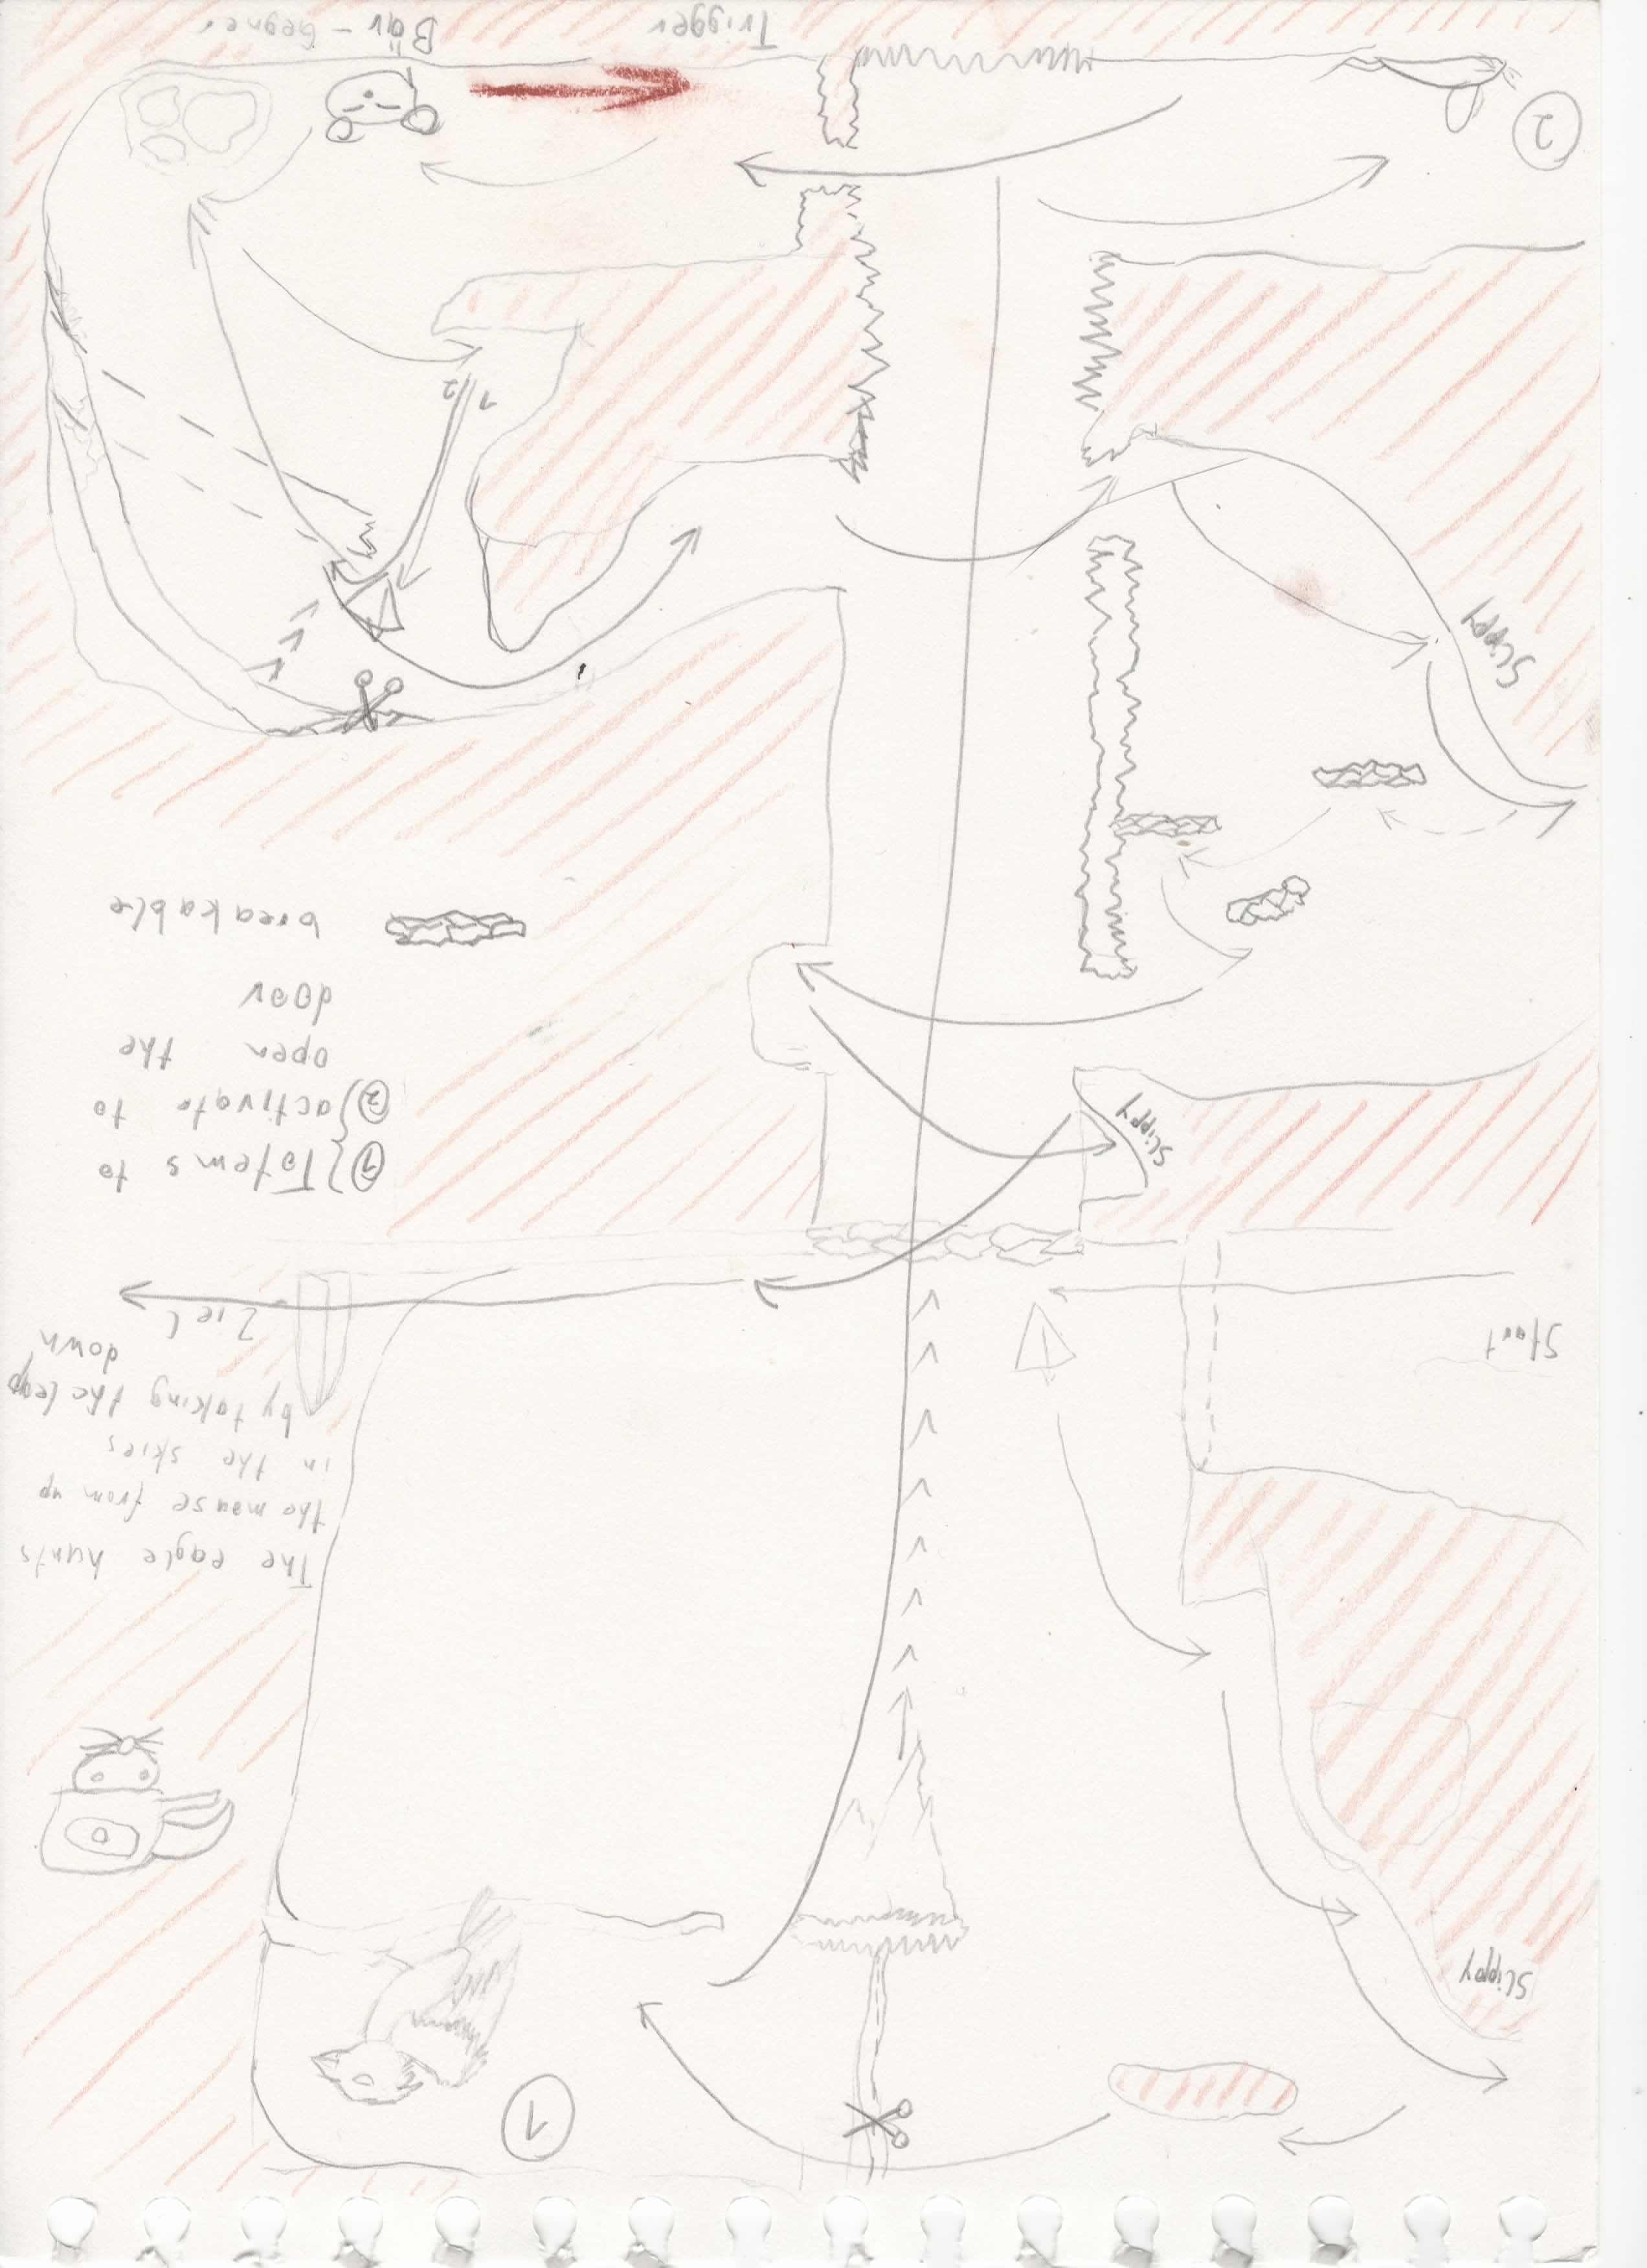 1
Slippy
The eagle hunts
the mouse from up
in the skies
by taking the leap
down
Start
Ziel
1 } Totems to
2 } activate to
open the
door
Slippy
breakable
Slippy
1 2
2
Trigger
Bär - Gegner